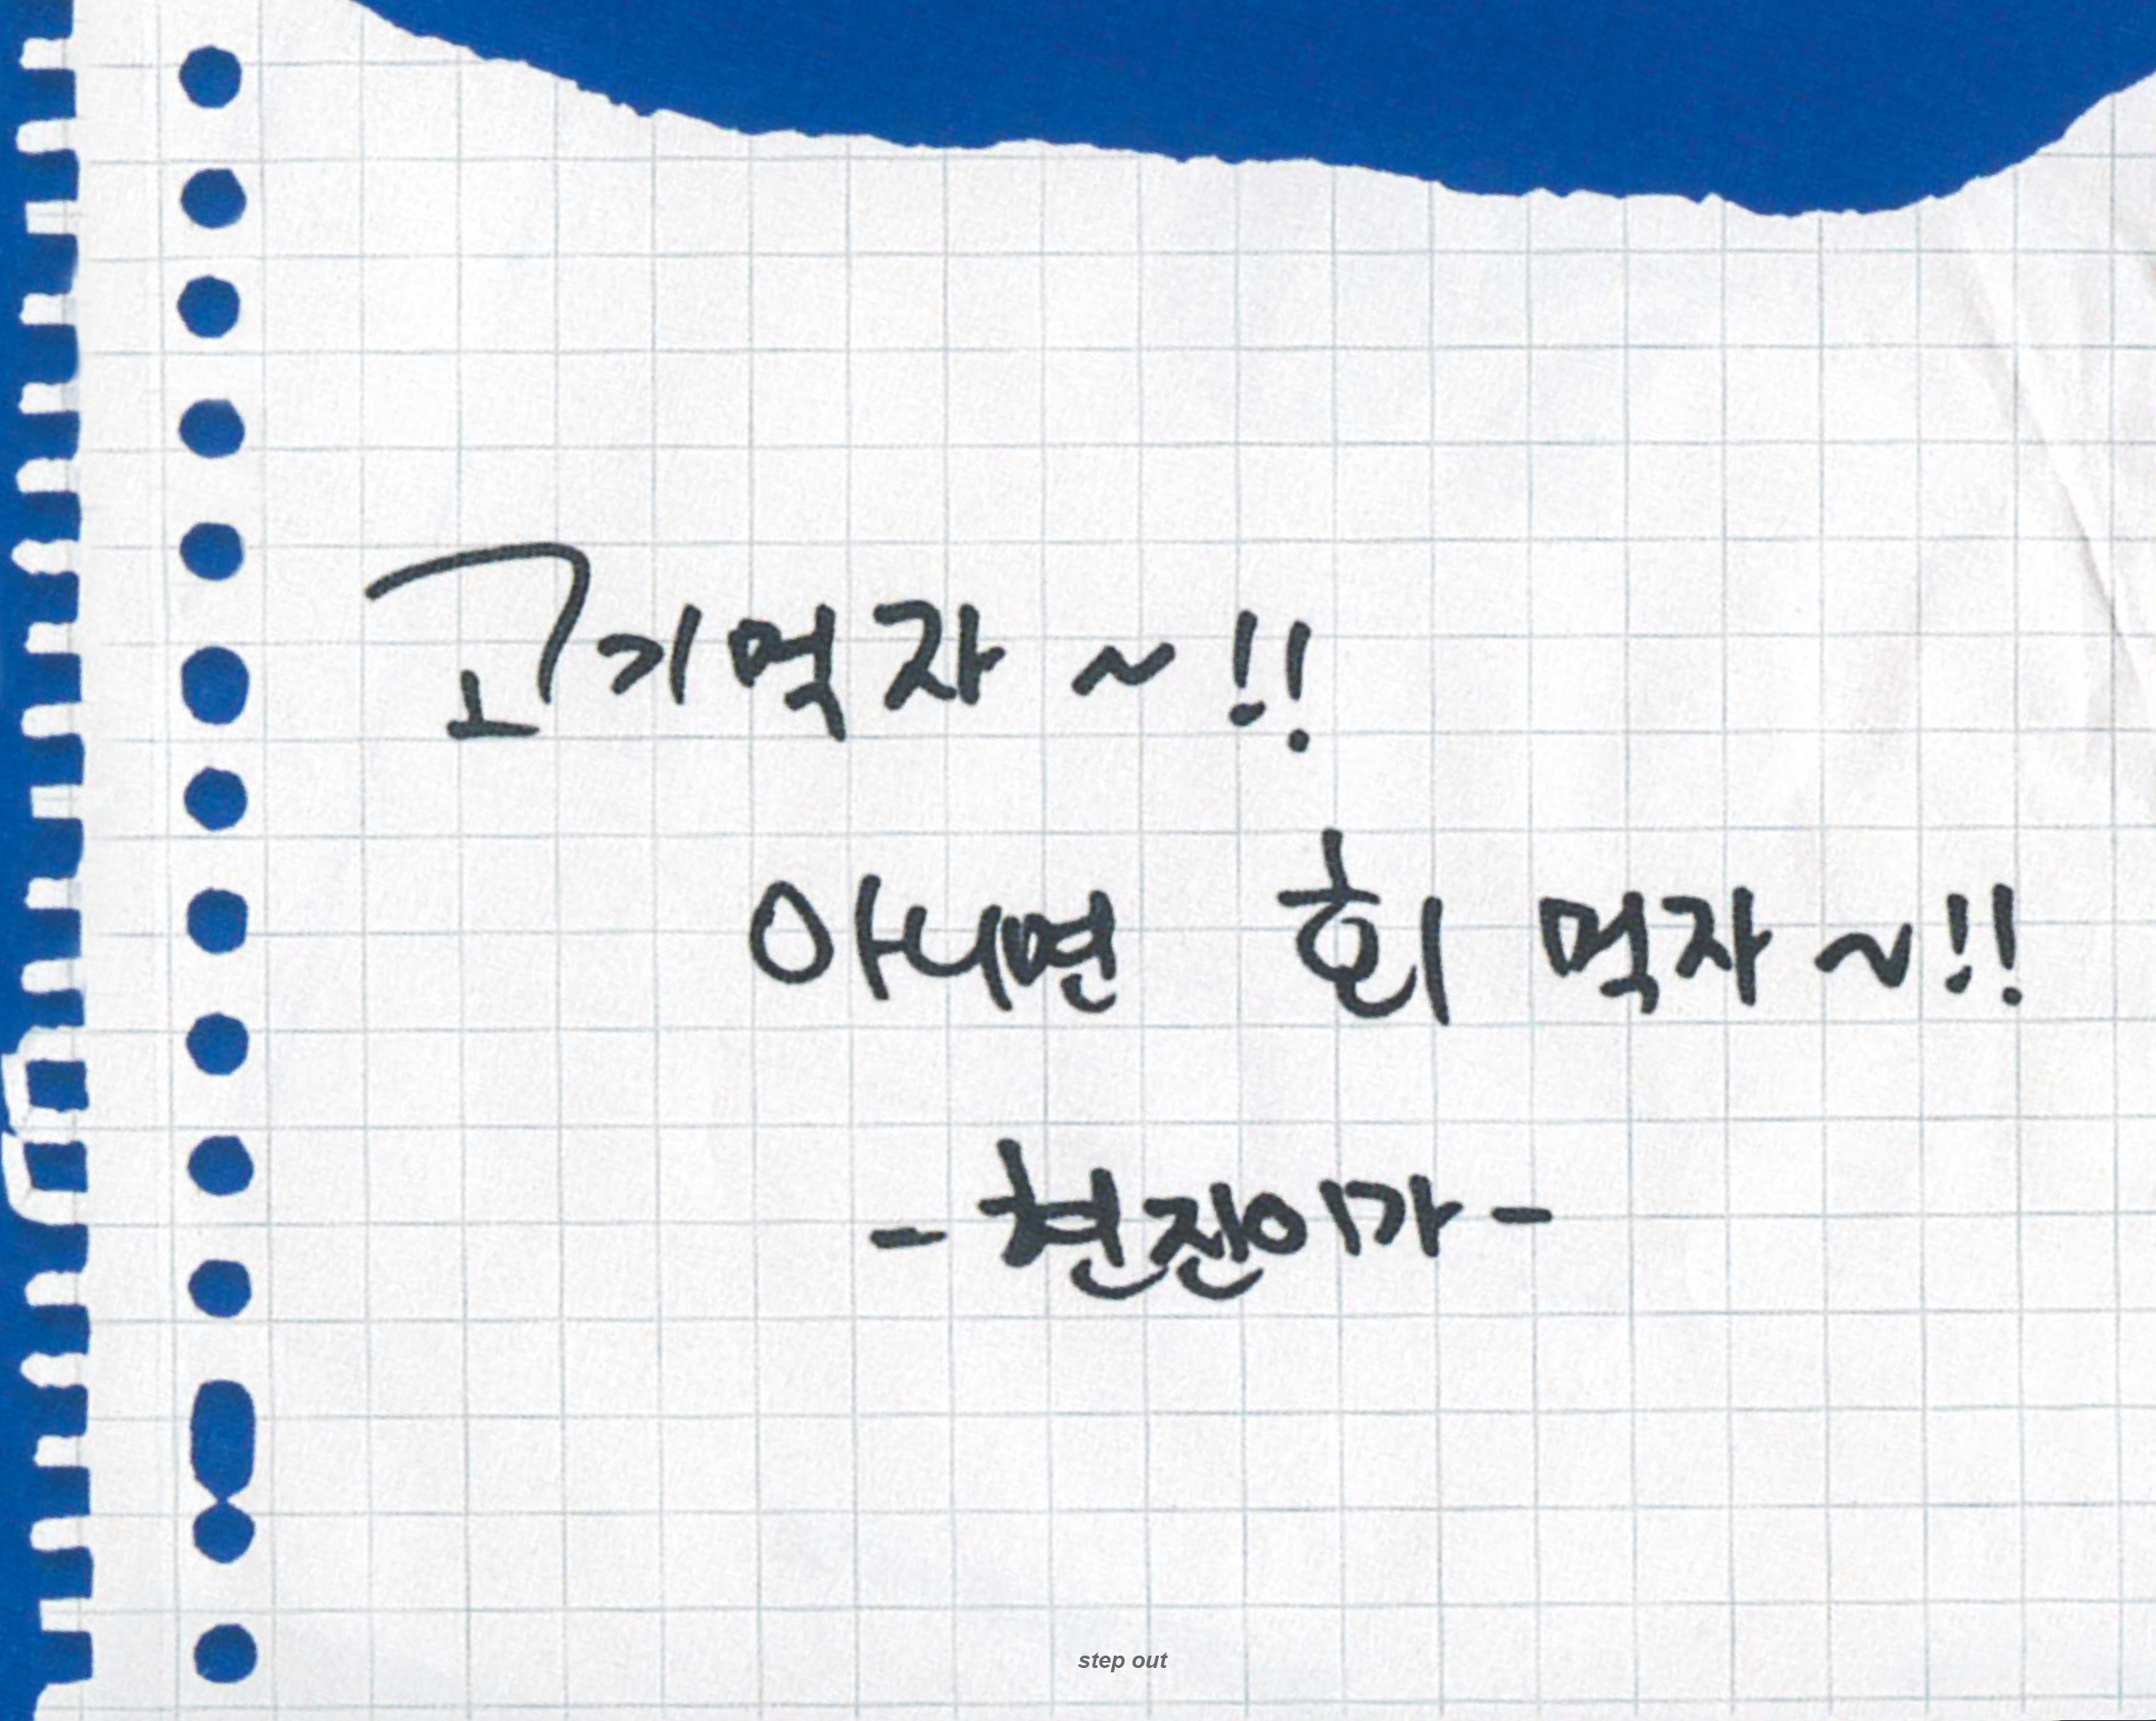 고기먹자 ~!!
아니면 회 먹자 ~!!
- 현진이가 -
step out